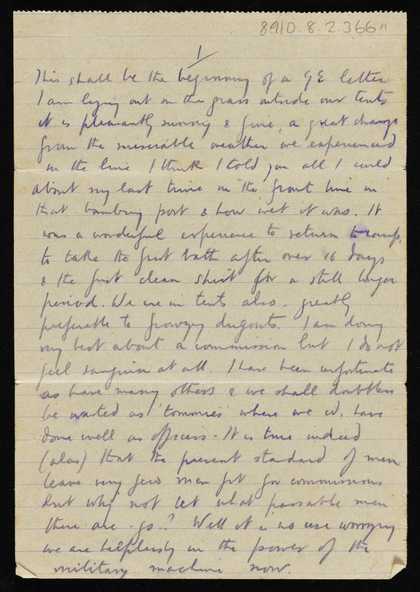 8910.8.2.366"
1
This shall be the beginning of a GE letter
I am lying out on the grass outside our tents
it is pleasantly sunny & fine, a great change
from the miserable weather we experienced
in the line I think I told you all I could
about my last time in the front line in
that bombing post & how wet it was. It
was a wonderful experience to return to camp,
to take the first bath after over 16 days
& the first clean shirt for a still longer
period. We are in tents also. greatly
preferable to dugouts. I am doing
my best about a commission but I do not
feel sanguine at all. I have been unfortunate
as have many others & we shall doubtless
be wasted as tommies where we cd. have
done well as officers. It is true indeed
(alas) that the present standard of men
leave very few men fit for commissions
but why not let what passable men
there are - go.? Well it is no use worrying
we are helplessly in the power of the
military machine now.